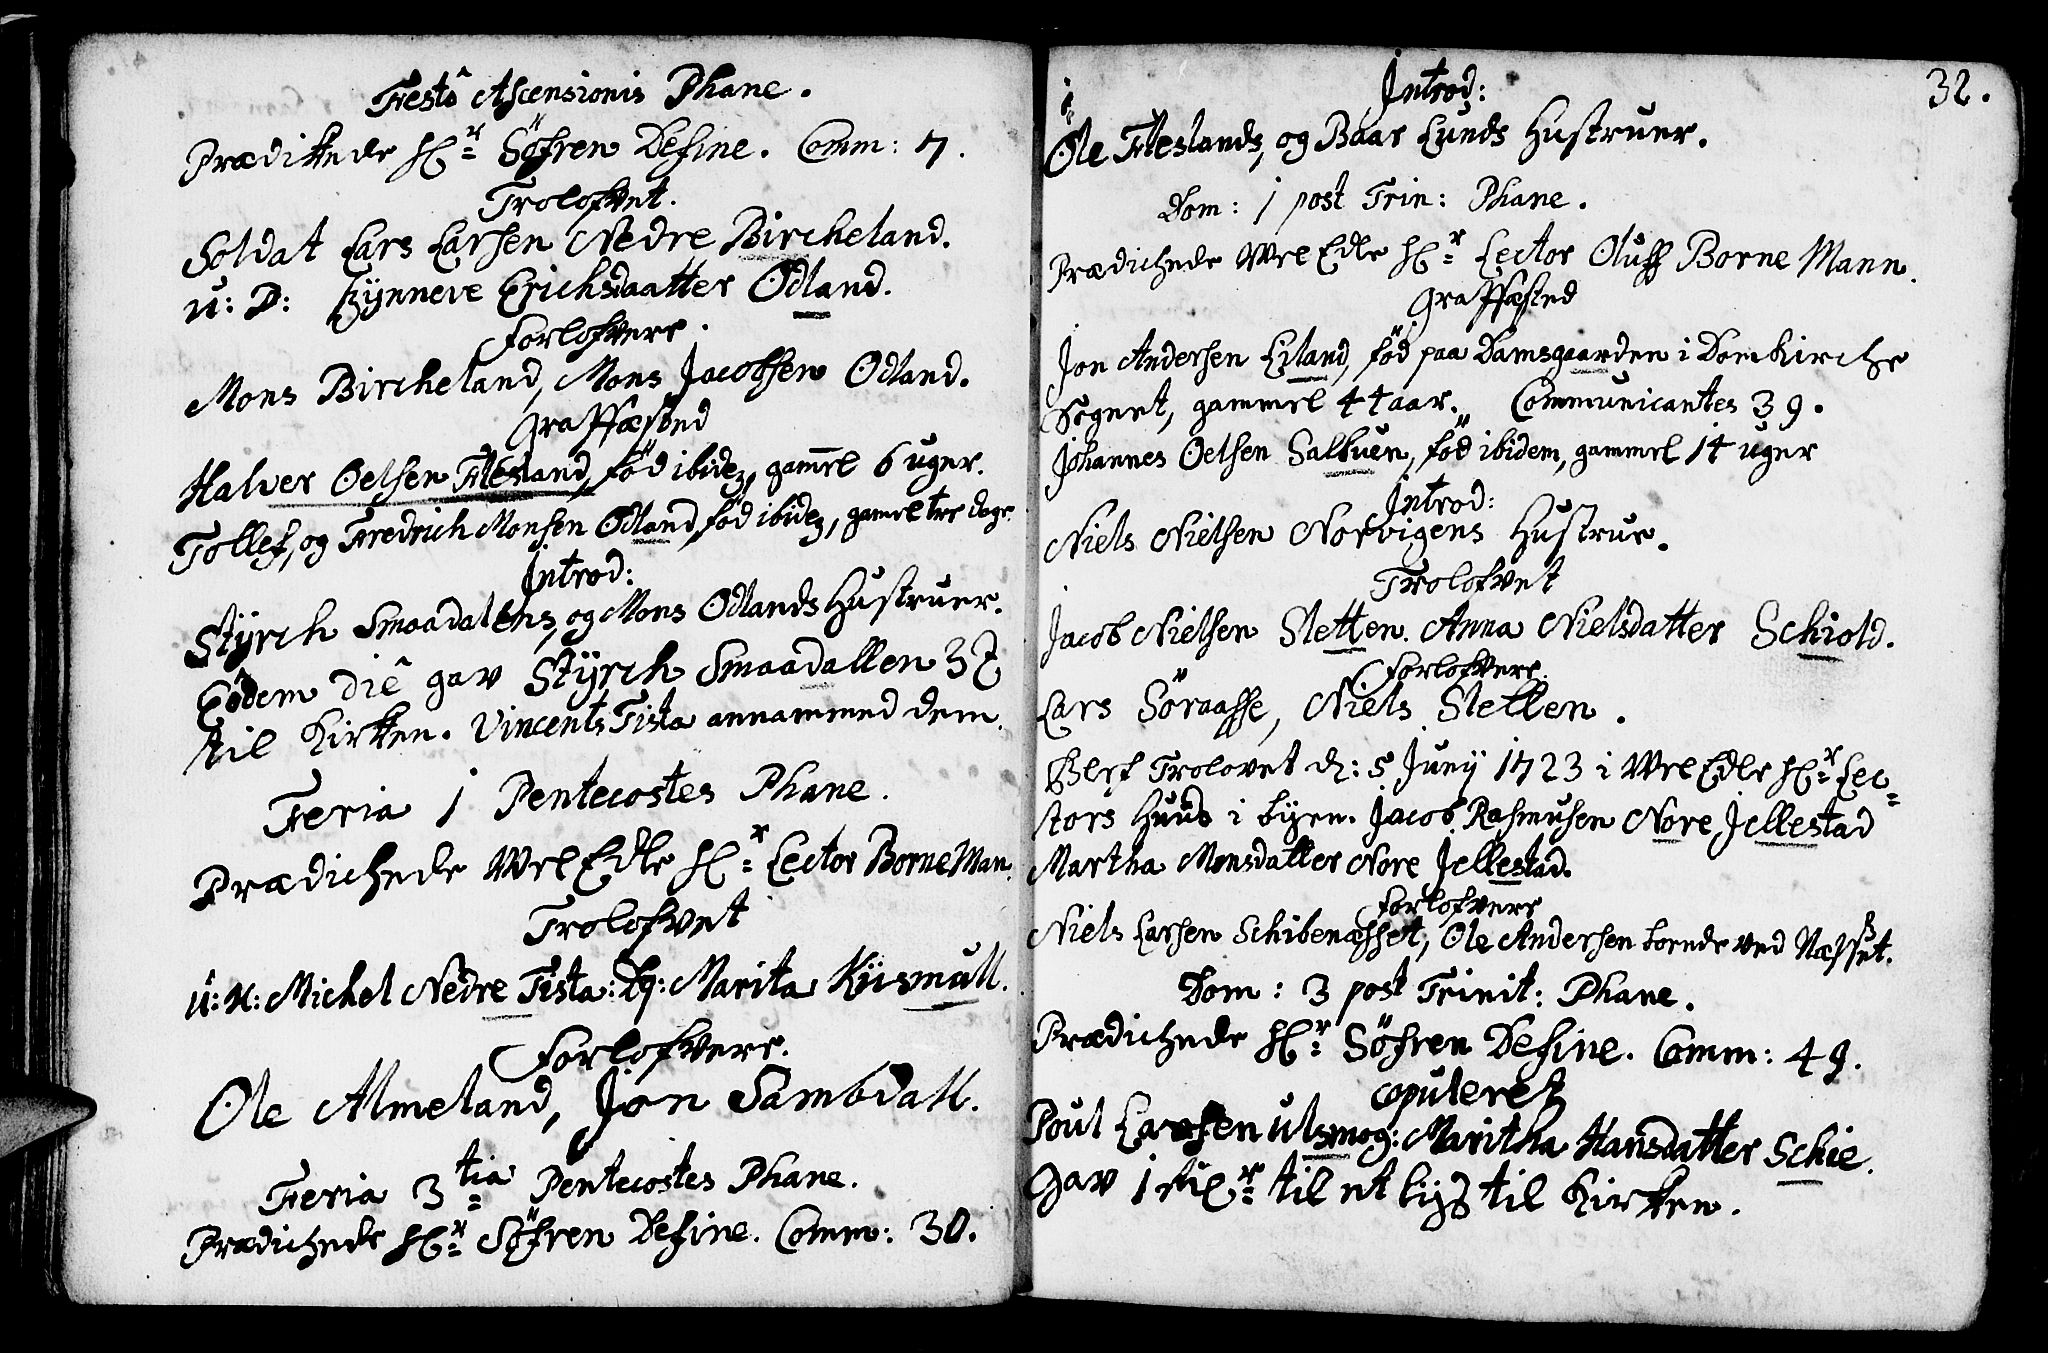 Festô Ascensionis Phane.
Prædikede Hr: Söfren Define. Comm: 7.
Trolofvet.
Soldat Lars Larsen Nedre Bircheland.
u: D: Synneve Erichsdaatter Ødland.
Forlofvere.
Mons Bircheland, Mons Jacobsen Ødland.
Graffæsted
Halver Oelsen Flesland, föd ibidem, gam̅el 6 uger.
Tollef, og Fredrich Monsen Ødland, föd ibidem, gamel tre dage.
Introd:
Styrch Smaadalens, og Mons Ødlands Hustruer.
Eôdem diê gav Styrch Smaadallen 3
til Kirken. Vincents Tista annammed dem.
Feria 1 Pentecostes Phane.
Prædichede Wel Edle Hr: Lector Borneman.
Trolofvet
u: K: Michel Nedre Tista: Marita Kiismull.
Forlofvere.
Ole Almeland, Jon Sambdall.
Feria 3tia Pentecostes Phane.
Prædichede Hr: Söfren Define. Comm: 30.
32.
Introd:
Ole Fleslands, og Baar Lunds Hustruer.
Dom: 1 post Trin: Phane.
Prædichede Wel Edle Hr: Lector Oluff Borne Mann.
Graffæsted
Jon Andersen Liland, föd paa Damsgaarden i Domkirche
Sognet, gammel 44 aar. Communicantes 39.
Johannes Oelsen Salbuen, föd ibidem, gammel 14 uger
Introd:
Niels Nielsen Norvigens Hustrue.
Trolofvet
Jacob Nielsen Sletten. Anna Nielsdatter Schiold.
Forlofvere.
Lars Söraasse, Niels Sletten.
Blef Trolovet d: 5 Junij 1723 i Wel Edle Hr: Lec-
tors Huus i byen. Jacob Rasmusen Nore Jellestad
Martha Monsdatter Nore Jellestad.
Forlofvere
Niels Larsen Schibenæsset, Ole Andersen boende ved Næsset.
Dom: 3 post Trinit: Phane.
Prædichede Hr: Söfren Define. Comm: 49.
copuleret
Poul Larsen ulsmog: Maritha Hansdatter Schie.
Gav 1 til et lius til Kirken.